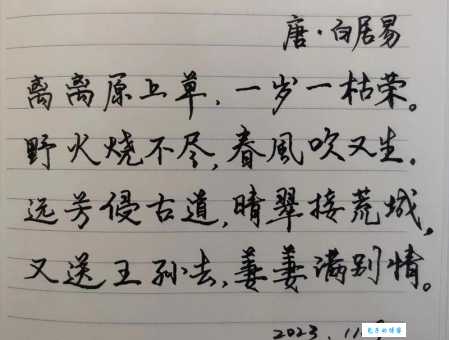 唐·白居易
离离原上草,一岁一枯荣。
野火烧不尽,春風吹又生.
远芳侵古道,晴翠接荒城,
又送王孙去,萋萋满别情。
2023.11.